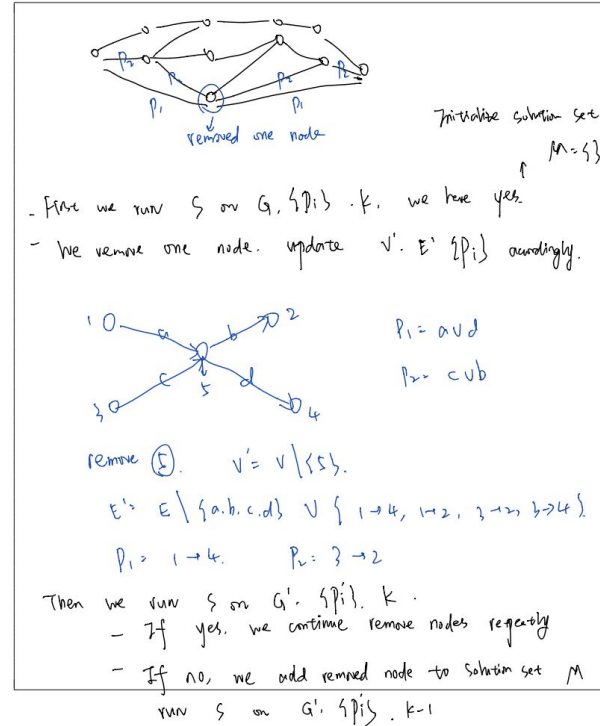 P2 P2 P2 P2
P1 P1
removed one node
Initialize solution set
M = { }
- First we run S on G, {Pi}. k. we have yes.
- We remove one node. update V'. E' {Pi} accordingly.
1 a b 2
3 c 5 d 4
P1 = a ∪ d
P2 = c ∪ b
remove ⑤. V' = V \ {5}.
E' = E \ {a.b.c.d} ∪ { 1→4, 1→2, 3→2, 3→4 }
P1 = 1→4. P2 = 3→2
Then we run S on G'. {Pi'}. k.
- If yes. we continue remove nodes repeatly
- If no, we add removed node to solution set M
run S on G'. {Pi'}. k-1